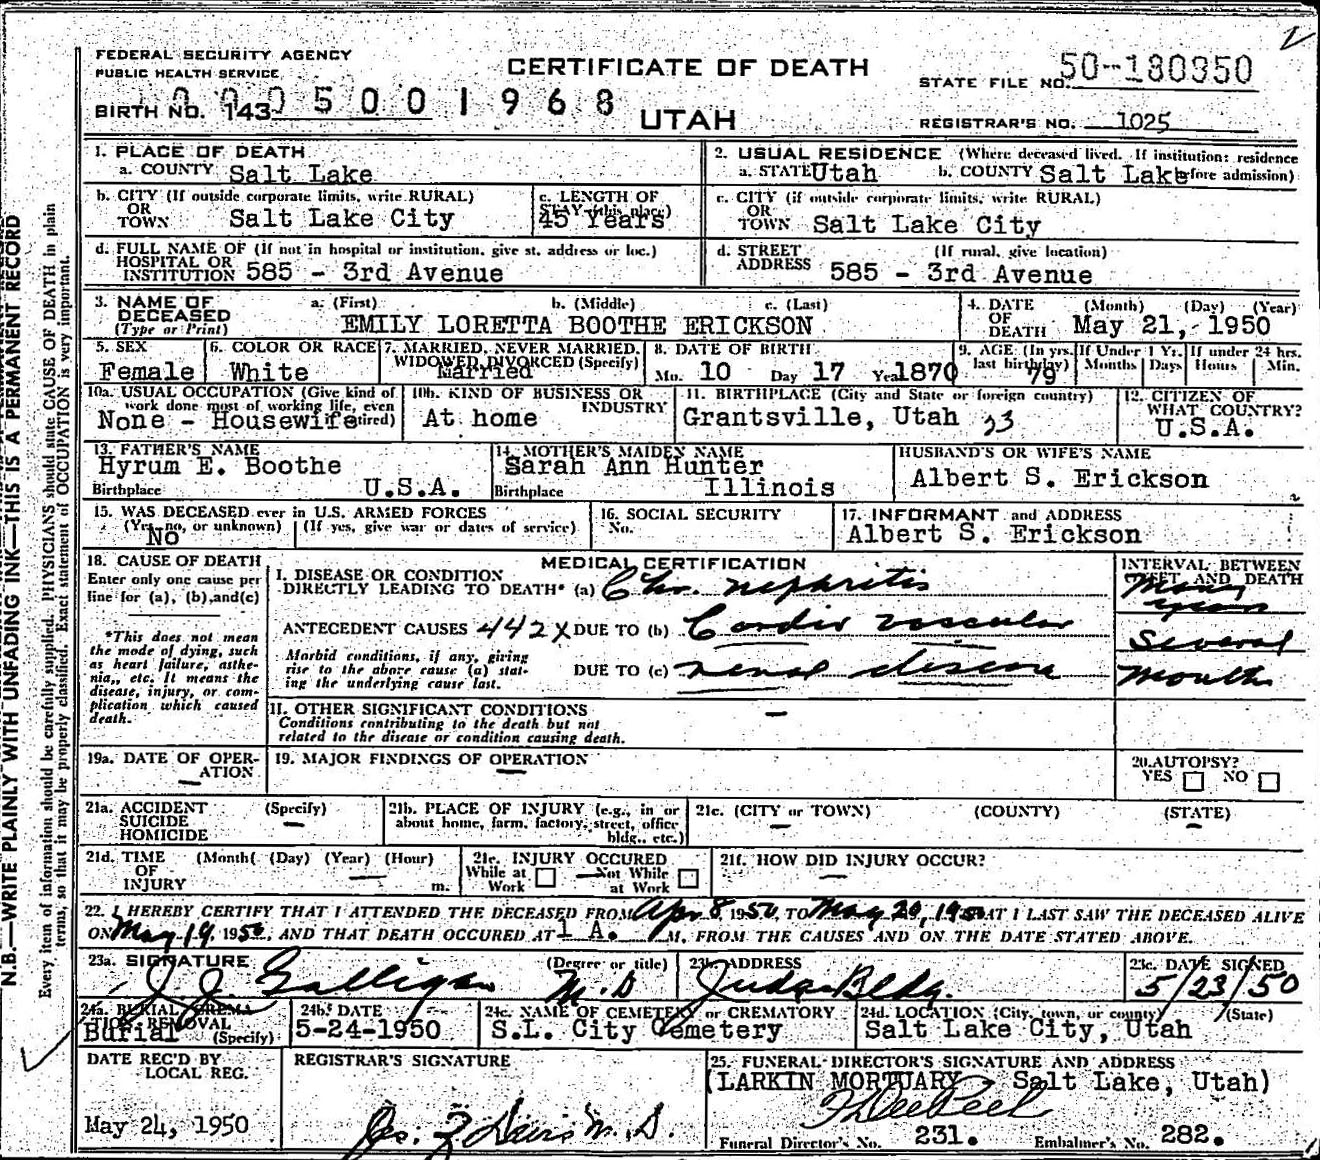 FEDERAL SECURITY AGENCY
PUBLIC HEALTH SERVICE
CERTIFICATE OF DEATH
STATE FILE NO. 50-180350
BIRTH NO. 143 0005001968
UTAH
REGISTRAR'S NO. 1025
1. PLACE OF DEATH
a. COUNTY Salt Lake
2. USUAL RESIDENCE (Where deceased lived. If institution: residence before admission)
a. STATE Utah b. COUNTY Salt Lake
b. CITY (If outside corporate limits, write RURAL)
OR
TOWN Salt Lake City
c. LENGTH OF
STAY (in this place)
45 Years
c. CITY (if outside corporate limits, write RURAL)
OR
TOWN Salt Lake City
d. FULL NAME OF (If not in hospital or institution, give st. address or loc.)
HOSPITAL OR
INSTITUTION 585 - 3rd Avenue
d. STREET (If rural, give location)
ADDRESS 585 - 3rd Avenue
3. NAME OF DECEASED (Type or Print)
a. (First) b. (Middle) c. (Last)
EMILY LORETTA BOOTHE ERICKSON
4. DATE OF DEATH (Month) (Day) (Year)
May 21, 1950
5. SEX
Female
6. COLOR OR RACE
White
7. MARRIED, NEVER MARRIED,
WIDOWED, DIVORCED (Specify)
Married
8. DATE OF BIRTH
Mo. 10 Day 17 Year 1870
9. AGE (In yrs. last birthday) 79
If Under 1 Yr. Months Days
If under 24 hrs. Hours Min.
10a. USUAL OCCUPATION (Give kind of
work done most of working life, even
if retired)
None - Housewife
10b. KIND OF BUSINESS OR
INDUSTRY
At home
11. BIRTHPLACE (City and State or foreign country)
Grantsville, Utah 23
12. CITIZEN OF
WHAT COUNTRY?
U.S.A.
13. FATHER'S NAME
Hyrum E. Boothe
Birthplace U.S.A.
14. MOTHER'S MAIDEN NAME
Sarah Ann Hunter
Birthplace Illinois
HUSBAND'S OR WIFE'S NAME
Albert S. Erickson
15. WAS DECEASED ever in U.S. ARMED FORCES
(Yes, no, or unknown) (If yes, give war or dates of service)
No
16. SOCIAL SECURITY
No.
17. INFORMANT and ADDRESS
Albert S. Erickson
18. CAUSE OF DEATH
Enter only one cause per
line for (a), (b), and (c)
*This does not mean
the mode of dying, such
as heart failure, asthe-
nia,, etc. It means the
disease, injury, or com-
plication which caused
death.
MEDICAL CERTIFICATION
I. DISEASE OR CONDITION
DIRECTLY LEADING TO DEATH* (a) Chr. nephritis
ANTECEDENT CAUSES 442X DUE TO (b) Cardio vascular
Morbid conditions, if any, giving
rise to the above cause (a) stat-
ing the underlying cause last.
DUE TO (c) renal disease
INTERVAL BETWEEN
ONSET AND DEATH
Many
years
Several
Months
II. OTHER SIGNIFICANT CONDITIONS —
Conditions contributing to the death but not
related to the disease or condition causing death.
19a. DATE OF OPER-
ATION —
19. MAJOR FINDINGS OF OPERATION —
20. AUTOPSY?
YES NO
21a. ACCIDENT (Specify)
SUICIDE —
HOMICIDE
21b. PLACE OF INJURY (e.g., in or
about home, farm, factory, street, office
bldg., etc.)
21c. (CITY or TOWN) (COUNTY) (STATE)
21d. TIME (Month) (Day) (Year) (Hour)
OF
INJURY m.
21e. INJURY OCCURED
While at Work Not While at Work
21f. HOW DID INJURY OCCUR?
22. I HEREBY CERTIFY THAT I ATTENDED THE DECEASED FROM Apr 8, 1950, TO May 20, 1950 THAT I LAST SAW THE DECEASED ALIVE
ON May 19, 1950, AND THAT DEATH OCCURED AT 1 A. M., FROM THE CAUSES AND ON THE DATE STATED ABOVE.
23a. SIGNATURE (Degree or title)
J. J. Galligan M.D
23b. ADDRESS
Judge Bldg.
23c. DATE SIGNED
5/23/50
24a. BURIAL, CREMA-
TION, REMOVAL
(Specify)
Burial
24b. DATE
5-24-1950
24c. NAME OF CEMETERY or CREMATORY
S.L. City Cemetery
24d. LOCATION (City, town, or county) (State)
Salt Lake City, Utah
DATE REC'D BY
LOCAL REG.
May 24, 1950
REGISTRAR'S SIGNATURE
25. FUNERAL DIRECTOR'S SIGNATURE AND ADDRESS
(LARKIN MORTUARY - Salt Lake, Utah)
Funeral Director's No. 231. Embalmer's No. 282.
N.B.—WRITE PLAINLY WITH UNFADING INK—THIS IS A PERMANENT RECORD
Every item of information should be carefully supplied. PHYSICIANS should state CAUSE OF DEATH in plain
terms, so that it may be properly classified. Exact statement of OCCUPATION is very important.